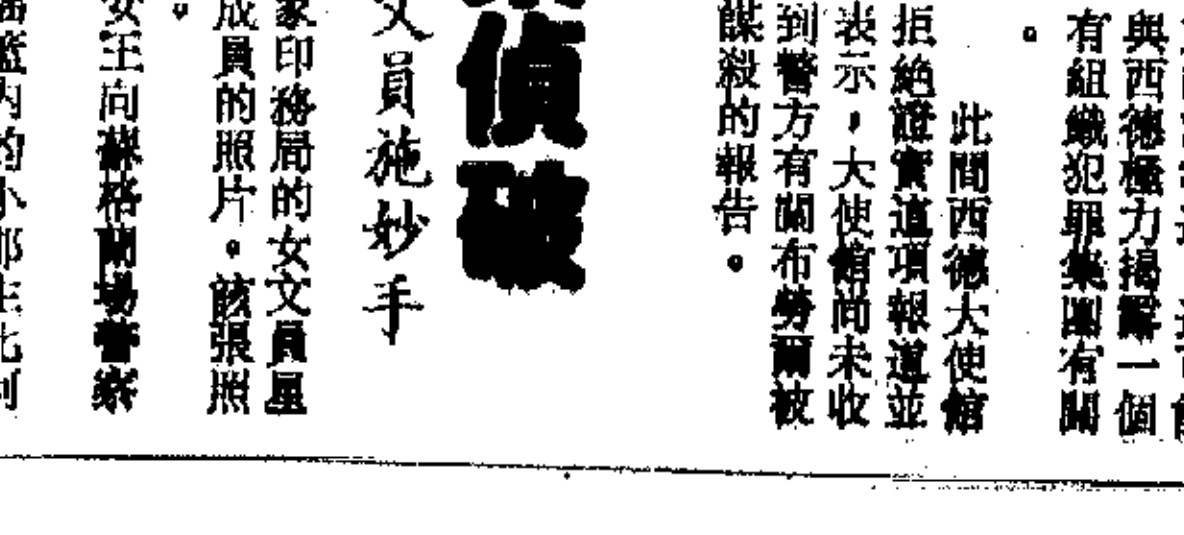 與西德極力揭露一個
有組織犯罪集團有關
。
此間西德大使館
拒絕證實這項報道並
表示，大使館尚未收
到警方有關布勞爾被
謀殺的報告。
偵破
文員施妙手
家印務局的女文員星
成員的照片。該張照
。
女王向蘇格蘭場警察